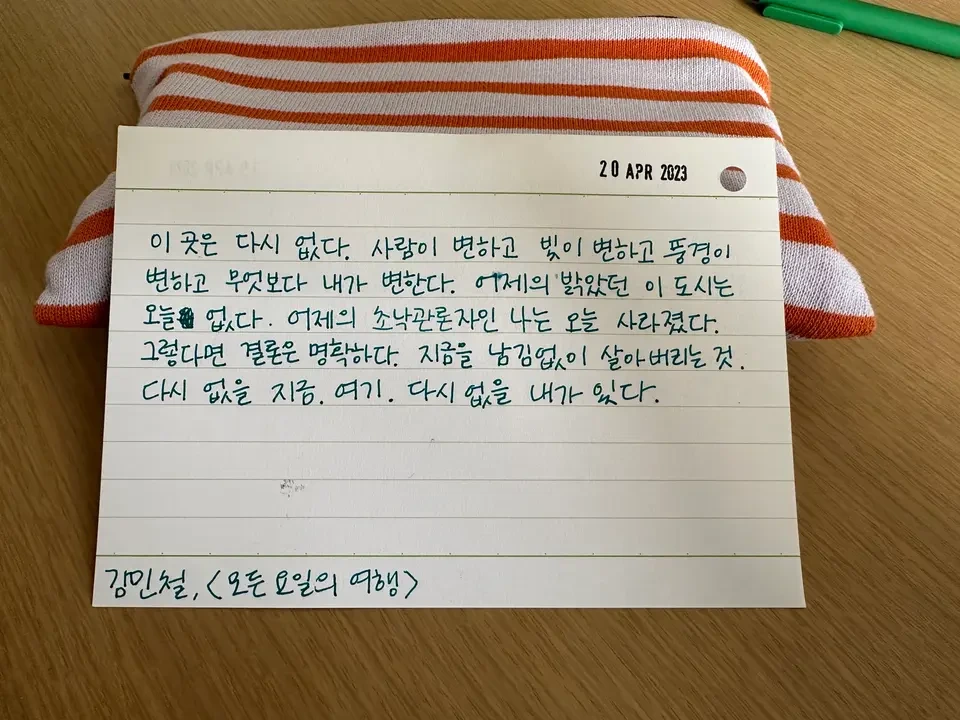 20 APR 2023
이 곳은 다시 없다. 사람이 변하고 빛이 변하고 풍경이
변하고 무엇보다 내가 변한다. 어제의 밝았던 이 도시는
오늘 없다. 어제의 초낙관론자인 나는 오늘 사라졌다.
그렇다면 결론은 명확하다. 지금을 남김없이 살아버리는 것.
다시 없을 지금. 여기. 다시 없을 내가 있다.
김민철, <모든 요일의 여행>